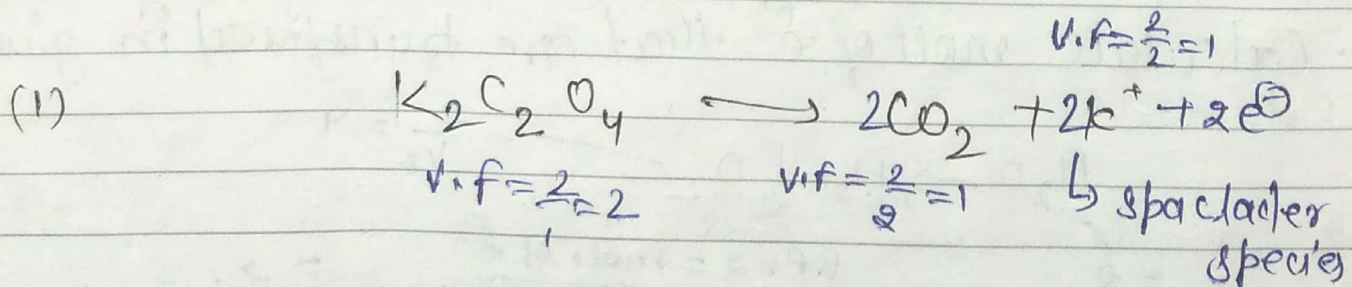 V.f = 2/2 = 1
(1) K₂C₂O₄ ⟶ 2CO₂ + 2K⁺ + 2e⊖
v.f = 2/1 = 2 v.f = 2/2 = 1 ↳ spaclader
species